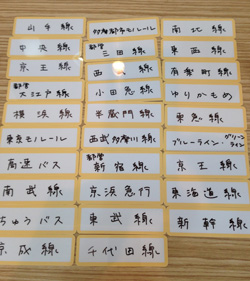 山手線
中央線
京王線
都営
大江戸線
横浜線
東京モノレール
高速バス
南武線
ちゅうバス
京成線
多摩都市モノレール
都営
三田線
西線
小田急線
半蔵門線
西武多摩川線
都営
新宿線
京浜急行
東武線
千代田線
南北線
東西線
有楽町線
ゆりかもめ
東急線
グリーン
ブルーライン・ライン
京王線
東海道線
新幹線